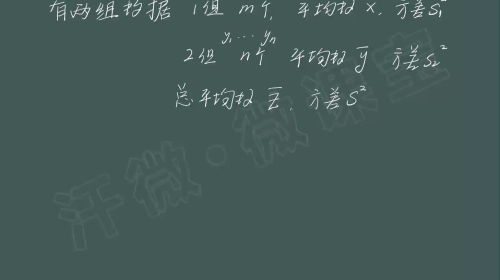 有两组数据 1组 m个, 平均数 x̄, 方差S₁²
y₁ ... yₙ
2组 n个 平均数 ȳ 方差S₂²
总平均数 z̄, 方差S²
汗微·微课堂